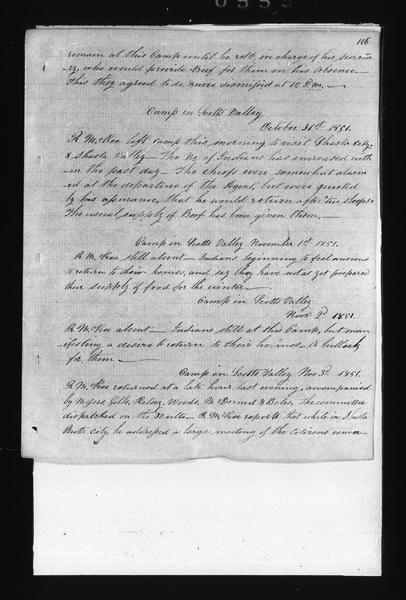 106
remain at this Camp until he retd, in charge of his Secreta-
ry, who would provide Beef for them in his absence—
This they agreed to do, & were dismissed at 10 P.m.—
Camp in Scotts Valley
October 31st 1851.
R McKee left camp this morning to visit Shasta City
& Shasta Valley— The No of Indians has increased with-
in the past day— The Chiefs were somewhat alarm
ed at the departure of the Agent, but were quieted
by his assurance, that he would return after two sleeps—
The usual supply of Beef has been given them.—
Camp in Scotts Valley November 1st 1851.
R. McKee still absent— Indians beginning to feel anxious
to return to their homes, and say they have not as yet prepared
their supply of food for the winter—
Camp in Scotts Valley
Novr 2d 1851.
R. McKee absent— Indians still at this Camp, but man
ifesting a desire to return to their homes— A bullock
for them—
Camp in Scotts Valley Nov 3d 1851.
R. McKee returned at a late hour last evening, accompanied
by Messrs Gibbs, Kelsey, Woods, McDermit & Boles, the committee
dispatched on the 30 ulto— R McKee reports that while in Shasta
Butte City, he addressed a large meeting of the Citizens conve-